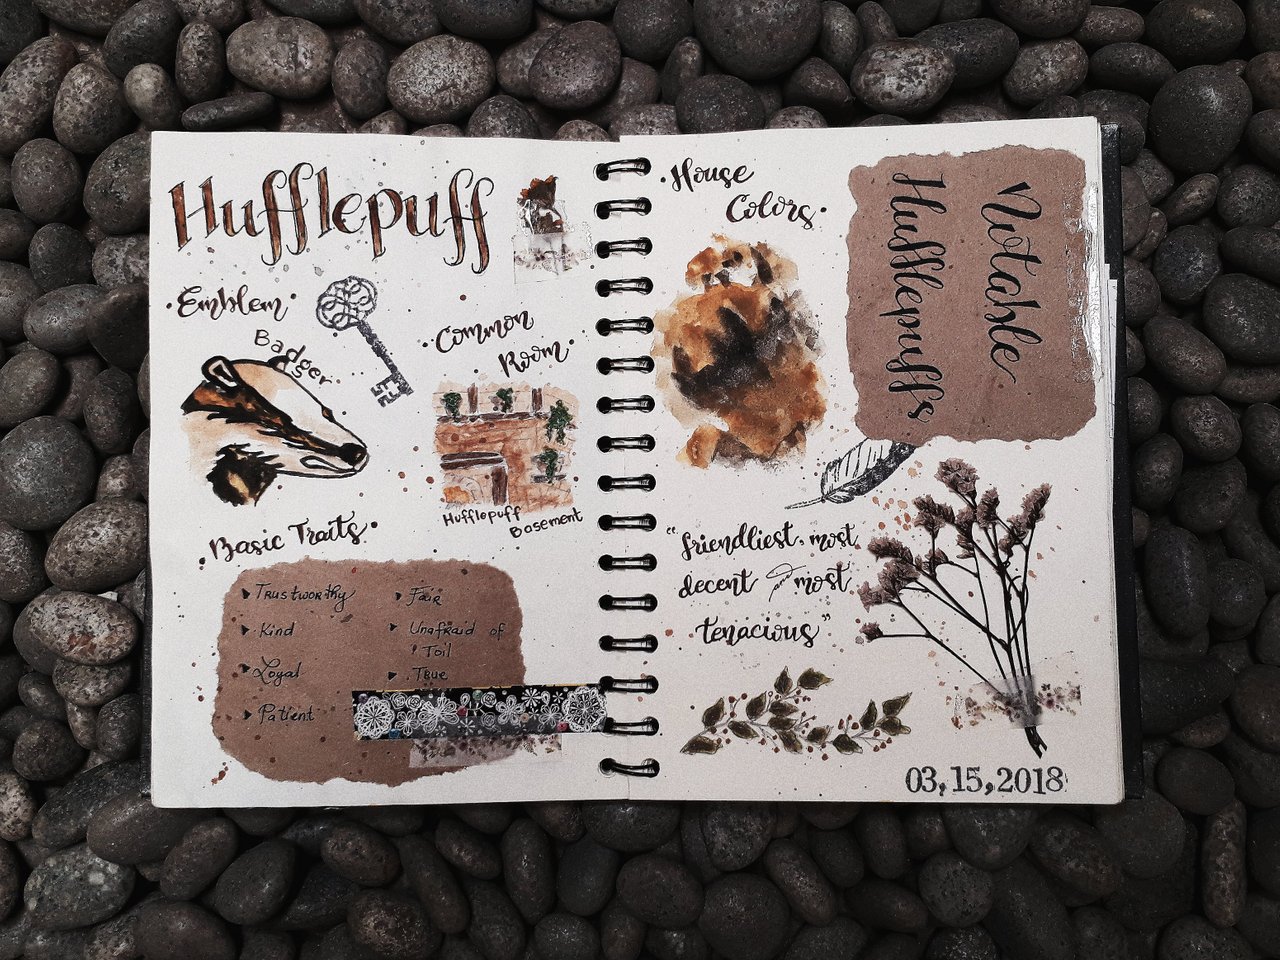 Hufflepuff
• Emblem •
Badger
• Common
Room •
Hufflepuff
Basement
• Basic Traits •
Trustworthy
Kind
Loyal
Patient
Fair
Unafraid of
Toil
True
• House
Colors •
Notable
Hufflepuffs
"friendliest, most
decent and most
tenacious"
03,15,2018